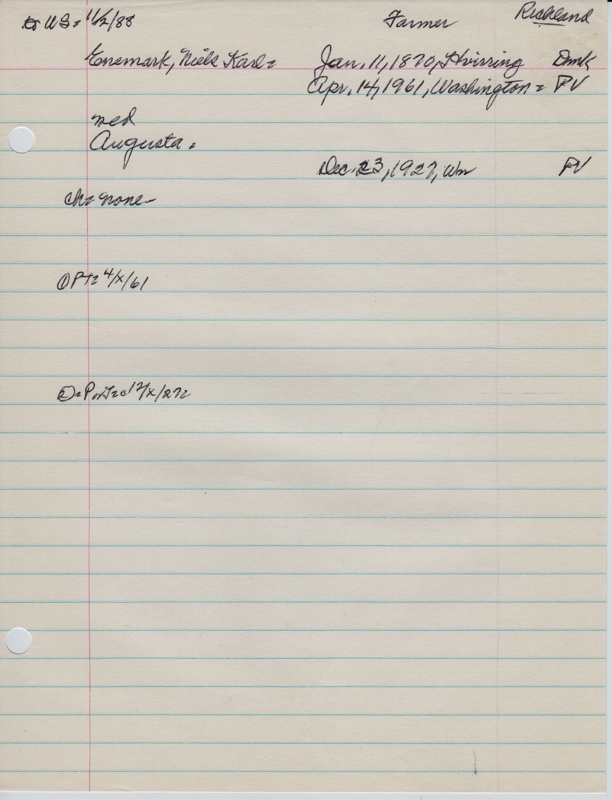 to US = 11/2/88 Farmer Richland
Enemark, Niels Karl = Jan. 11, 1870, Hvirring Dmk
Apr. 14, 1961, Washington = PV
med
Augusta =
Dec. 23, 1927, Wn PV
ch = none
① PT = 4/x/61
② = Port = c 12/x/27c